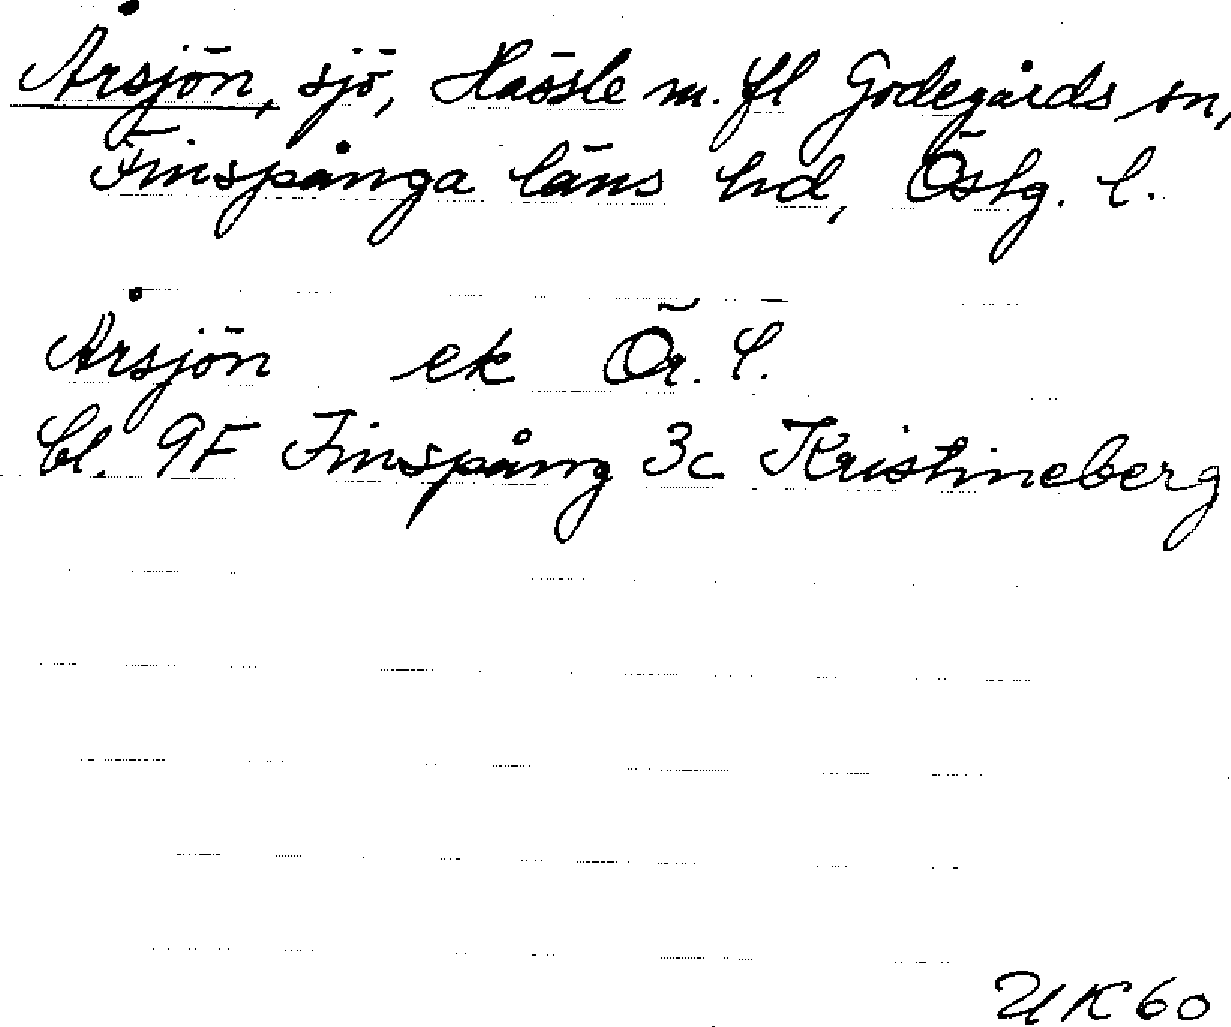 Årsjön, sjö, Hässle m. fl Godegårds sn,
Finspånga läns hd, Östg. l.
Årsjön ek Ör. l.
bl. 9F Finspång 3c Kristineberg
UK 60